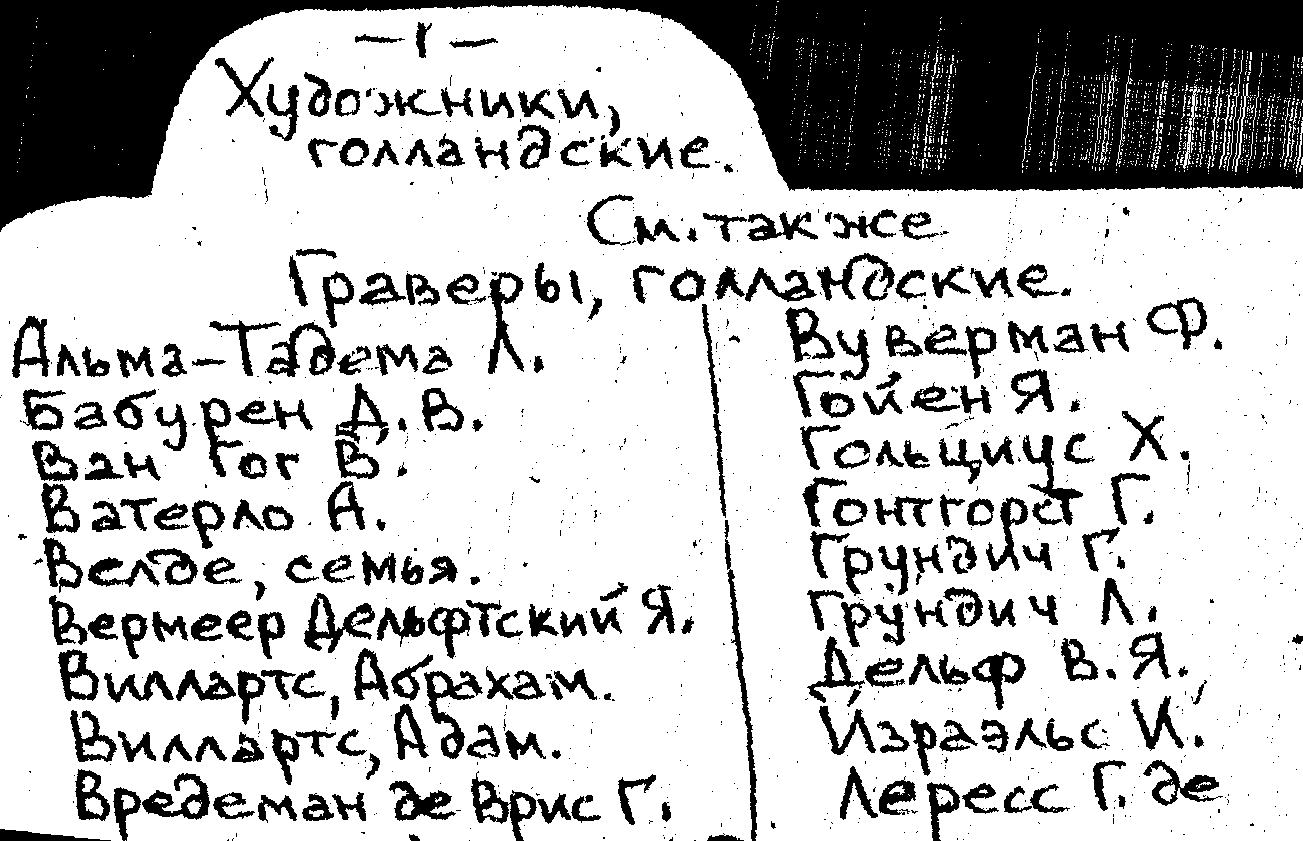 — 1 —
Художники,
голландские.
См. также
Граверы, голландские.
Альма-Тадема Л.
Бабурен Д. В.
Ван Гог В.
Ватерло А.
Велде, семья.
Вермеер Дельфтский Я.
Виллартс, Абрахам.
Виллартс, Адам.
Вредеман де Врис Г.
Вуверман Ф.
Гойен Я.
Гольциус Х.
Гонтгорст Г.
Грундич Г.
Грундич Л.
Дельф В. Я.
Израэльс И.
Лересс Г. де